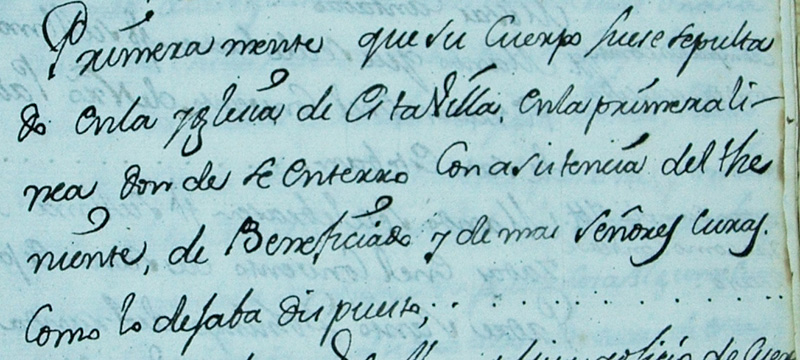 Primera mente que su Cuerpo fuese sepulta
do en la Yglecia de Esta Villa, en la primera li-
nea don de se enterro Con asistencia del the
niente, de Beneficiado y demas señores Curas.
Como lo dejaba dispuesto;